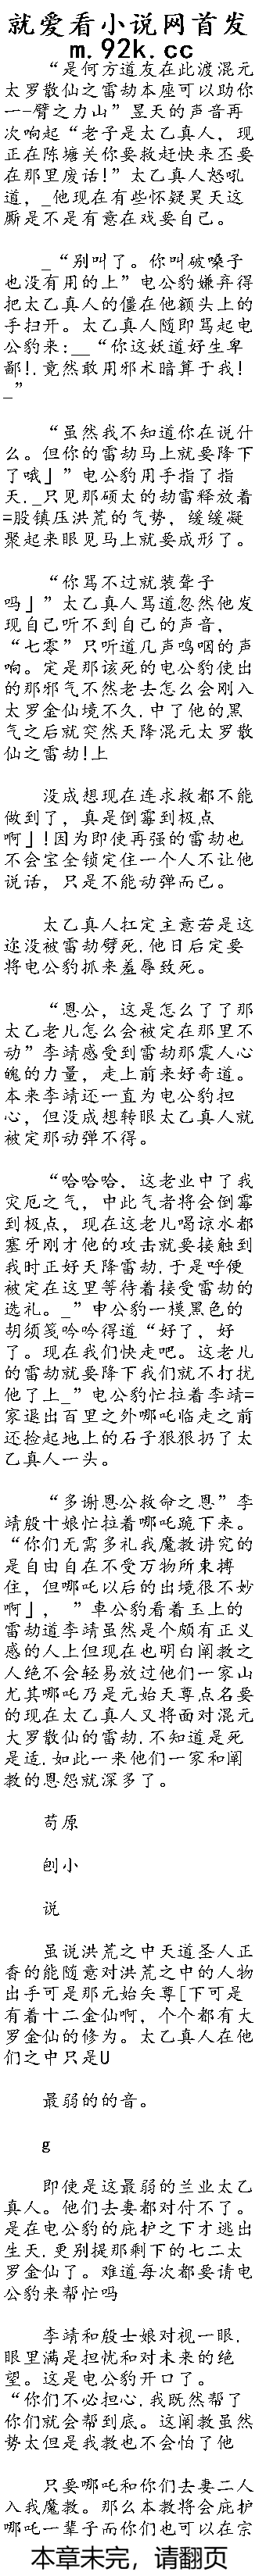 就爱看小说网首发
m.92k.cc
“是何方道友在此渡混元
太罗散仙之雷劫本座可以助你
一-臂之力山”昱天的声音再
次响起“老子是太乙真人，现
正在陈塘关你要救赶快来丕要
在那里废话!”太乙真人怒吼
道，_他现在有些怀疑昊天这
厮是不是有意在戏要自己。
_“别叫了。你叫破嗓子
也没有用的上”电公豹嫌弃得
把太乙真人的僵在他额头上的
手扫开。太乙真人随即骂起电
公豹来:__“你这妖道好生卑
鄙!.竟然敢用邪术暗算于我!
_”
“虽然我不知道你在说什
么。但你的雷劫马上就要降下
了哦」”电公豹用手指了指
天._只见那硕太的劫雷释放着
=股镇压洪荒的气势，缓缓凝
聚起来眼见马上就要成形了。
“你骂不过就装聋子
吗」”太乙真人骂道忽然他发
现自己听不到自己的声音，
“七零”只听道几声鸣咽的声
响。定是那该死的电公豹使出
的那邪气不然老去怎么会刚入
太罗金仙境不久.中了他的黑
气之后就突然天降混元太罗散
仙之雷劫!上
没成想现在连求救都不能
做到了，真是倒霉到极点
啊」!因为即使再强的雷劫也
不会宝全锁定住一个人不让他
说话，只是不能动弹而已。
太乙真人扛定主意若是这
迩没被雷劫劈死.他日后定要
将电公豹抓来羞辱致死。
“恩公，这是怎么了了那
太乙老儿怎么会被定在那里不
动”李靖感受到雷劫那震人心
魄的力量，走上前来好奇道。
本来李靖还一直为电公豹担
心，但没成想转眼太乙真人就
被定那动弹不得。
“哈哈哈，这老业中了我
灾厄之气，中此气者将会倒霉
到极点，现在这老儿喝谅水都
塞牙刚才他的攻击就要接触到
我时正好天降雷劫.于是呼便
被定在这里等待着接受雷劫的
选礼。_”申公豹一模黑色的
胡须笺吟吟得道“好了，好
了。现在我们快走吧。这老儿
的雷劫就要降下我们就不打扰
他了上_”电公豹忙拉着李靖=
家退出百里之外哪吒临走之前
还捡起地上的石子狠狠扔了太
乙真人一头。
“多谢恩公救命之恩”李
靖殷十娘忙拉着哪吒跪下来。
“你们无需多礼我魔教讲究的
是自由自在不受万物所束搏
住，但哪吒以后的出境很不妙
啊」，”車公豹看着玉上的
雷劫道李靖虽然是个颇有正义
感的人上但现在也明白阐教之
人绝不会轻易放过他们一家山
尤其哪吒乃是元始天尊点名要
的现在太乙真人又将面对混元
大罗散仙的雷劫.不知道是死
是适.如此一来他们一家和阐
教的恩怨就深多了。
苟原
刨小
说
虽说洪荒之中天道圣人正
香的能随意对洪荒之中的人物
出手可是那元始矢尊[下可是
有着十二金仙啊，个个都有大
罗金仙的修为。太乙真人在他
们之中只是U
最弱的的音。
g
即使是这最弱的兰业太乙
真人。他们去妻都对付不了。
是在电公豹的庇护之下才逃出
生天.更别提那剩下的七二太
罗金仙了。难道每次都要请电
公豹来帮忙吗
李靖和殷士娘对视一眼.
眼里满是担忧和对未来的绝
望。这是电公豹开口了。
“你们不必担心.我既然帮了
你们就会帮到底。这阐教虽然
势太但是我教也不会怕了他
只要哪吒和你们去妻二人
入我魔教。那么本教将会庇护
哪吒一辈子而你们也可以在宗
本章未完，请翻页